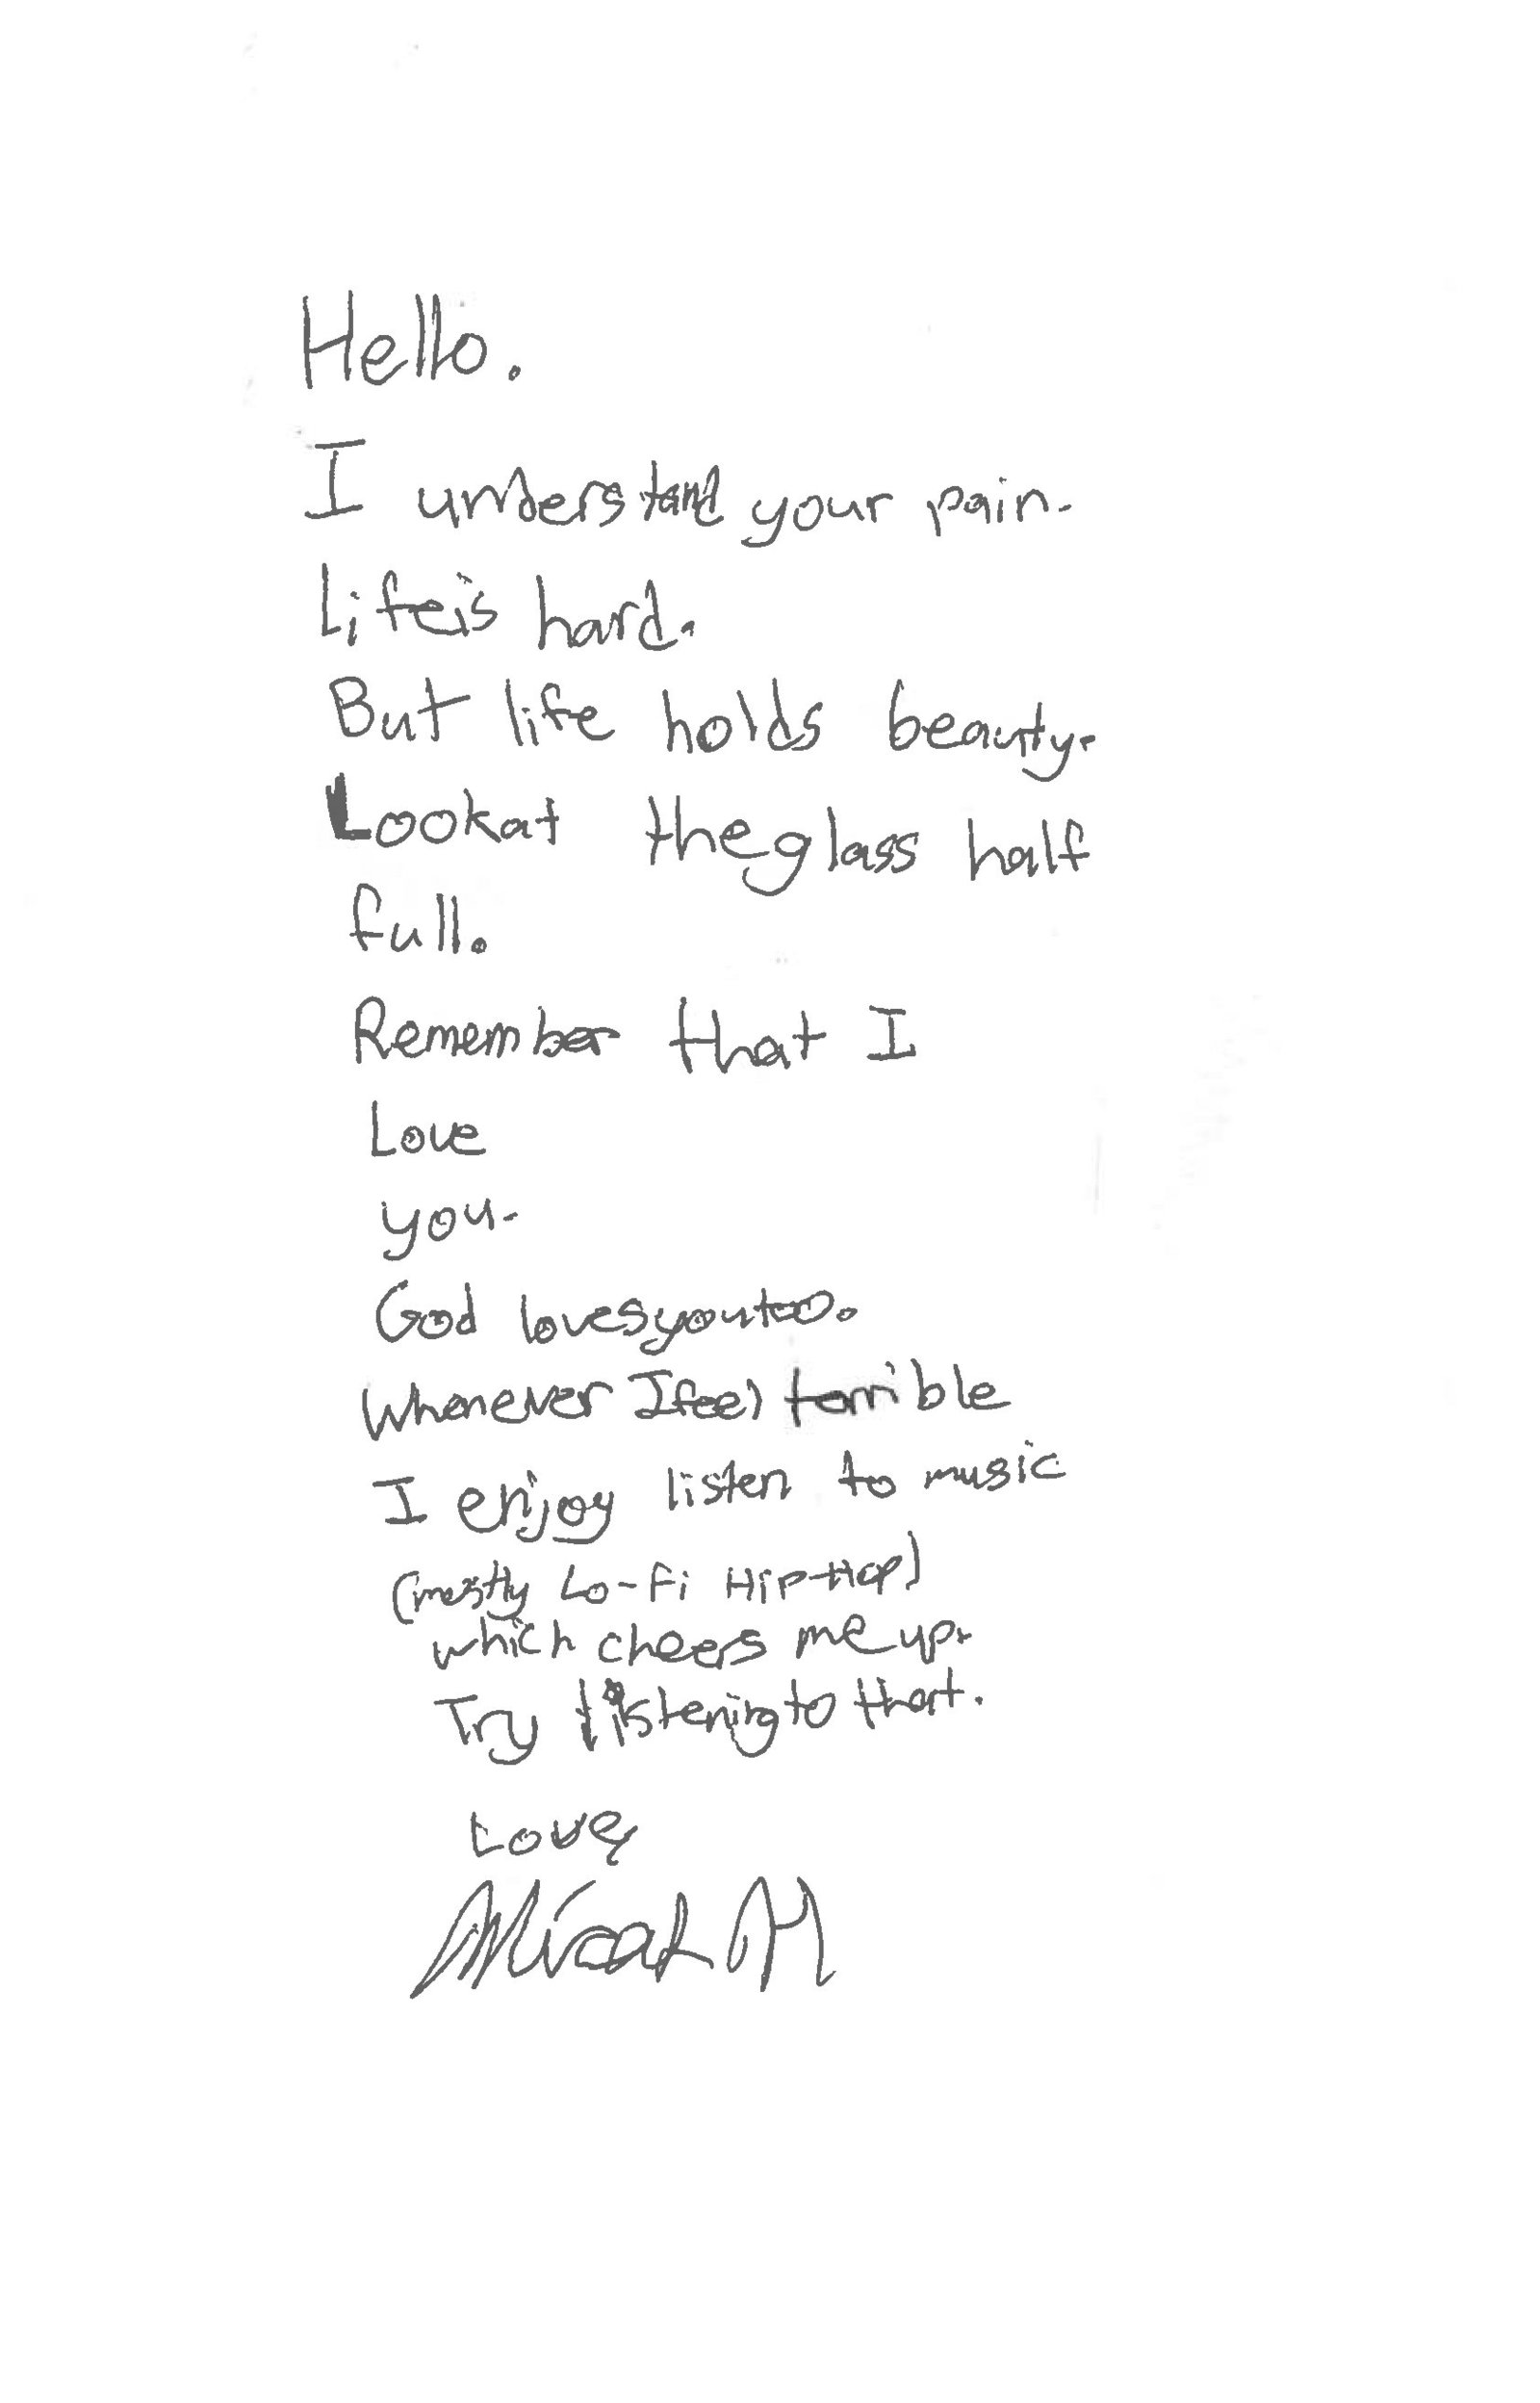 Hello.
I understand your pain.
Life is hard.
But life holds beauty.
Look at the glass half
full.
Remember that I
Love
you.
God loves you too.
Whenever I feel terrible
I enjoy listen to music
(mostly Lo-Fi Hip-Hop)
which cheers me up.
Try listening to that.
Love,
Micah M